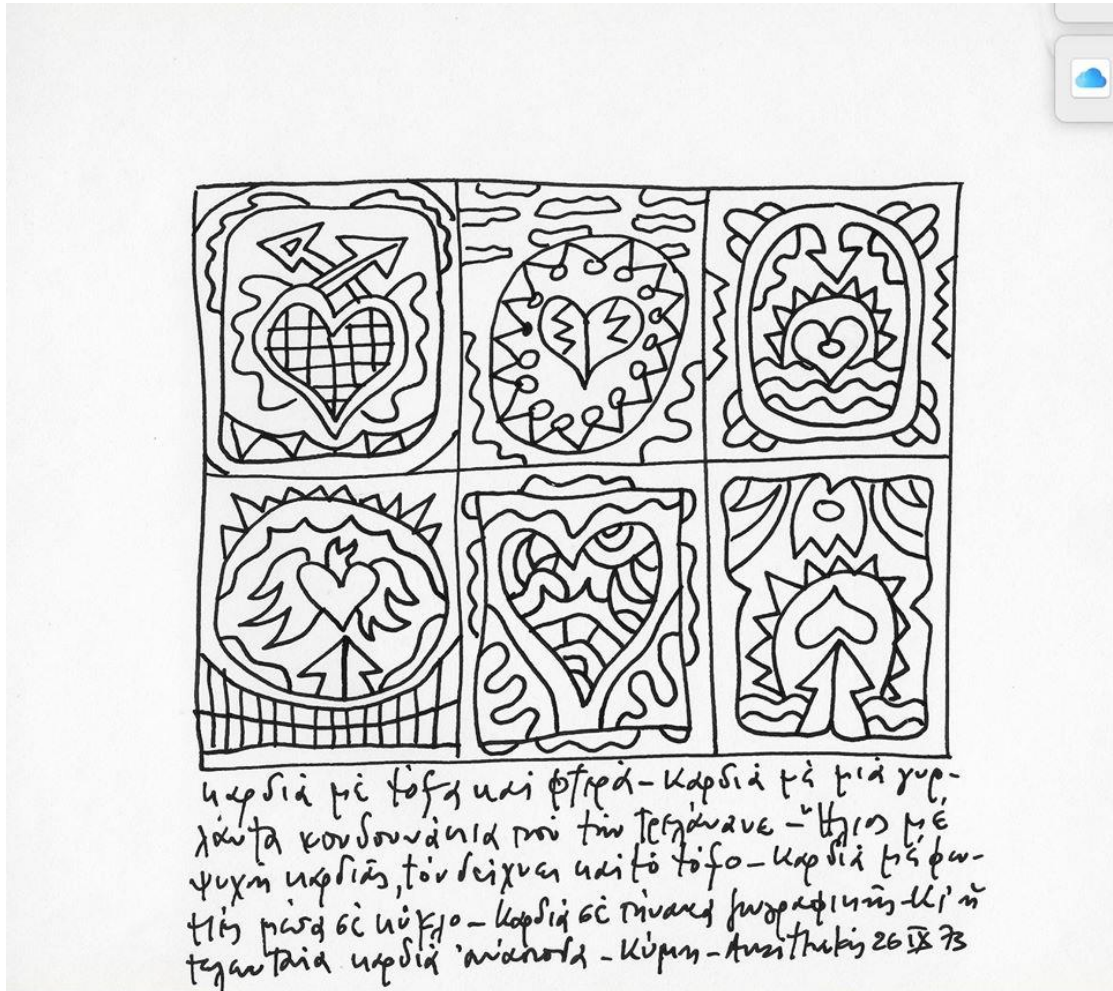 καρδιά μέ τόξα καί φτερά – Καρδιά μέ μιά γυρ-
λάντα κουδουνάκια πού τήν τρελάνανε – Ἥλιος μέ
ψυχή καρδιᾶς, τόν δείχνει καί τό τόξο – Καρδιά μέ φω-
τιές μέσα σέ κύκλο – Καρδιά σέ πίνακα ζωγραφικῆς – Κι ἡ
τελευταία καρδιά ἀνάποδα – Κύμη – 26 IX 73